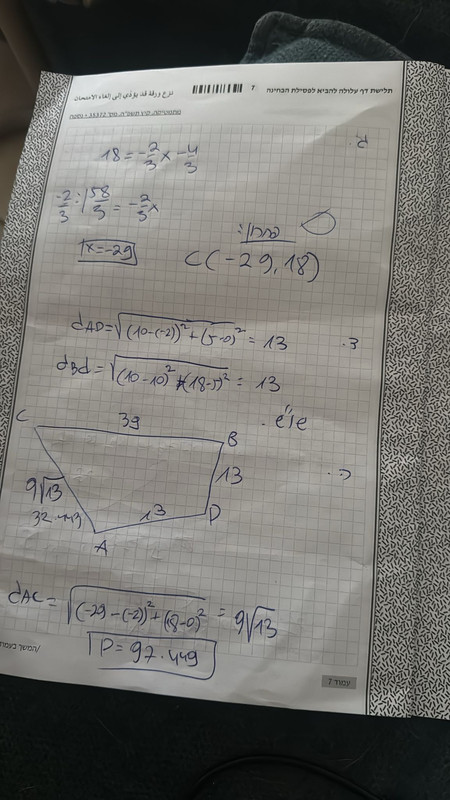 תלישת דף עלולה להביא לפסילת הבחינה
7
نزع ورقة قد يؤدي إلى إلغاء الامتحان
מתמטיקה, קיץ תשפ"ה, מס' 35372 + נספח
18 = -2/3 x - 4/3
-2/3 :| 58/3 = -2/3 x
x = -29
פתרון:
C(-29, 18)
dAD = √((10-(-2))² + (5-0)²) = 13
dBd = √((10-10)² + (18-5)²) = 13
C
39
B
9√13
32.443
13
13
D
A
dAC = √((-29-(-2))² + (18-0)²) = 9√13
P = 97.449
עמוד 7